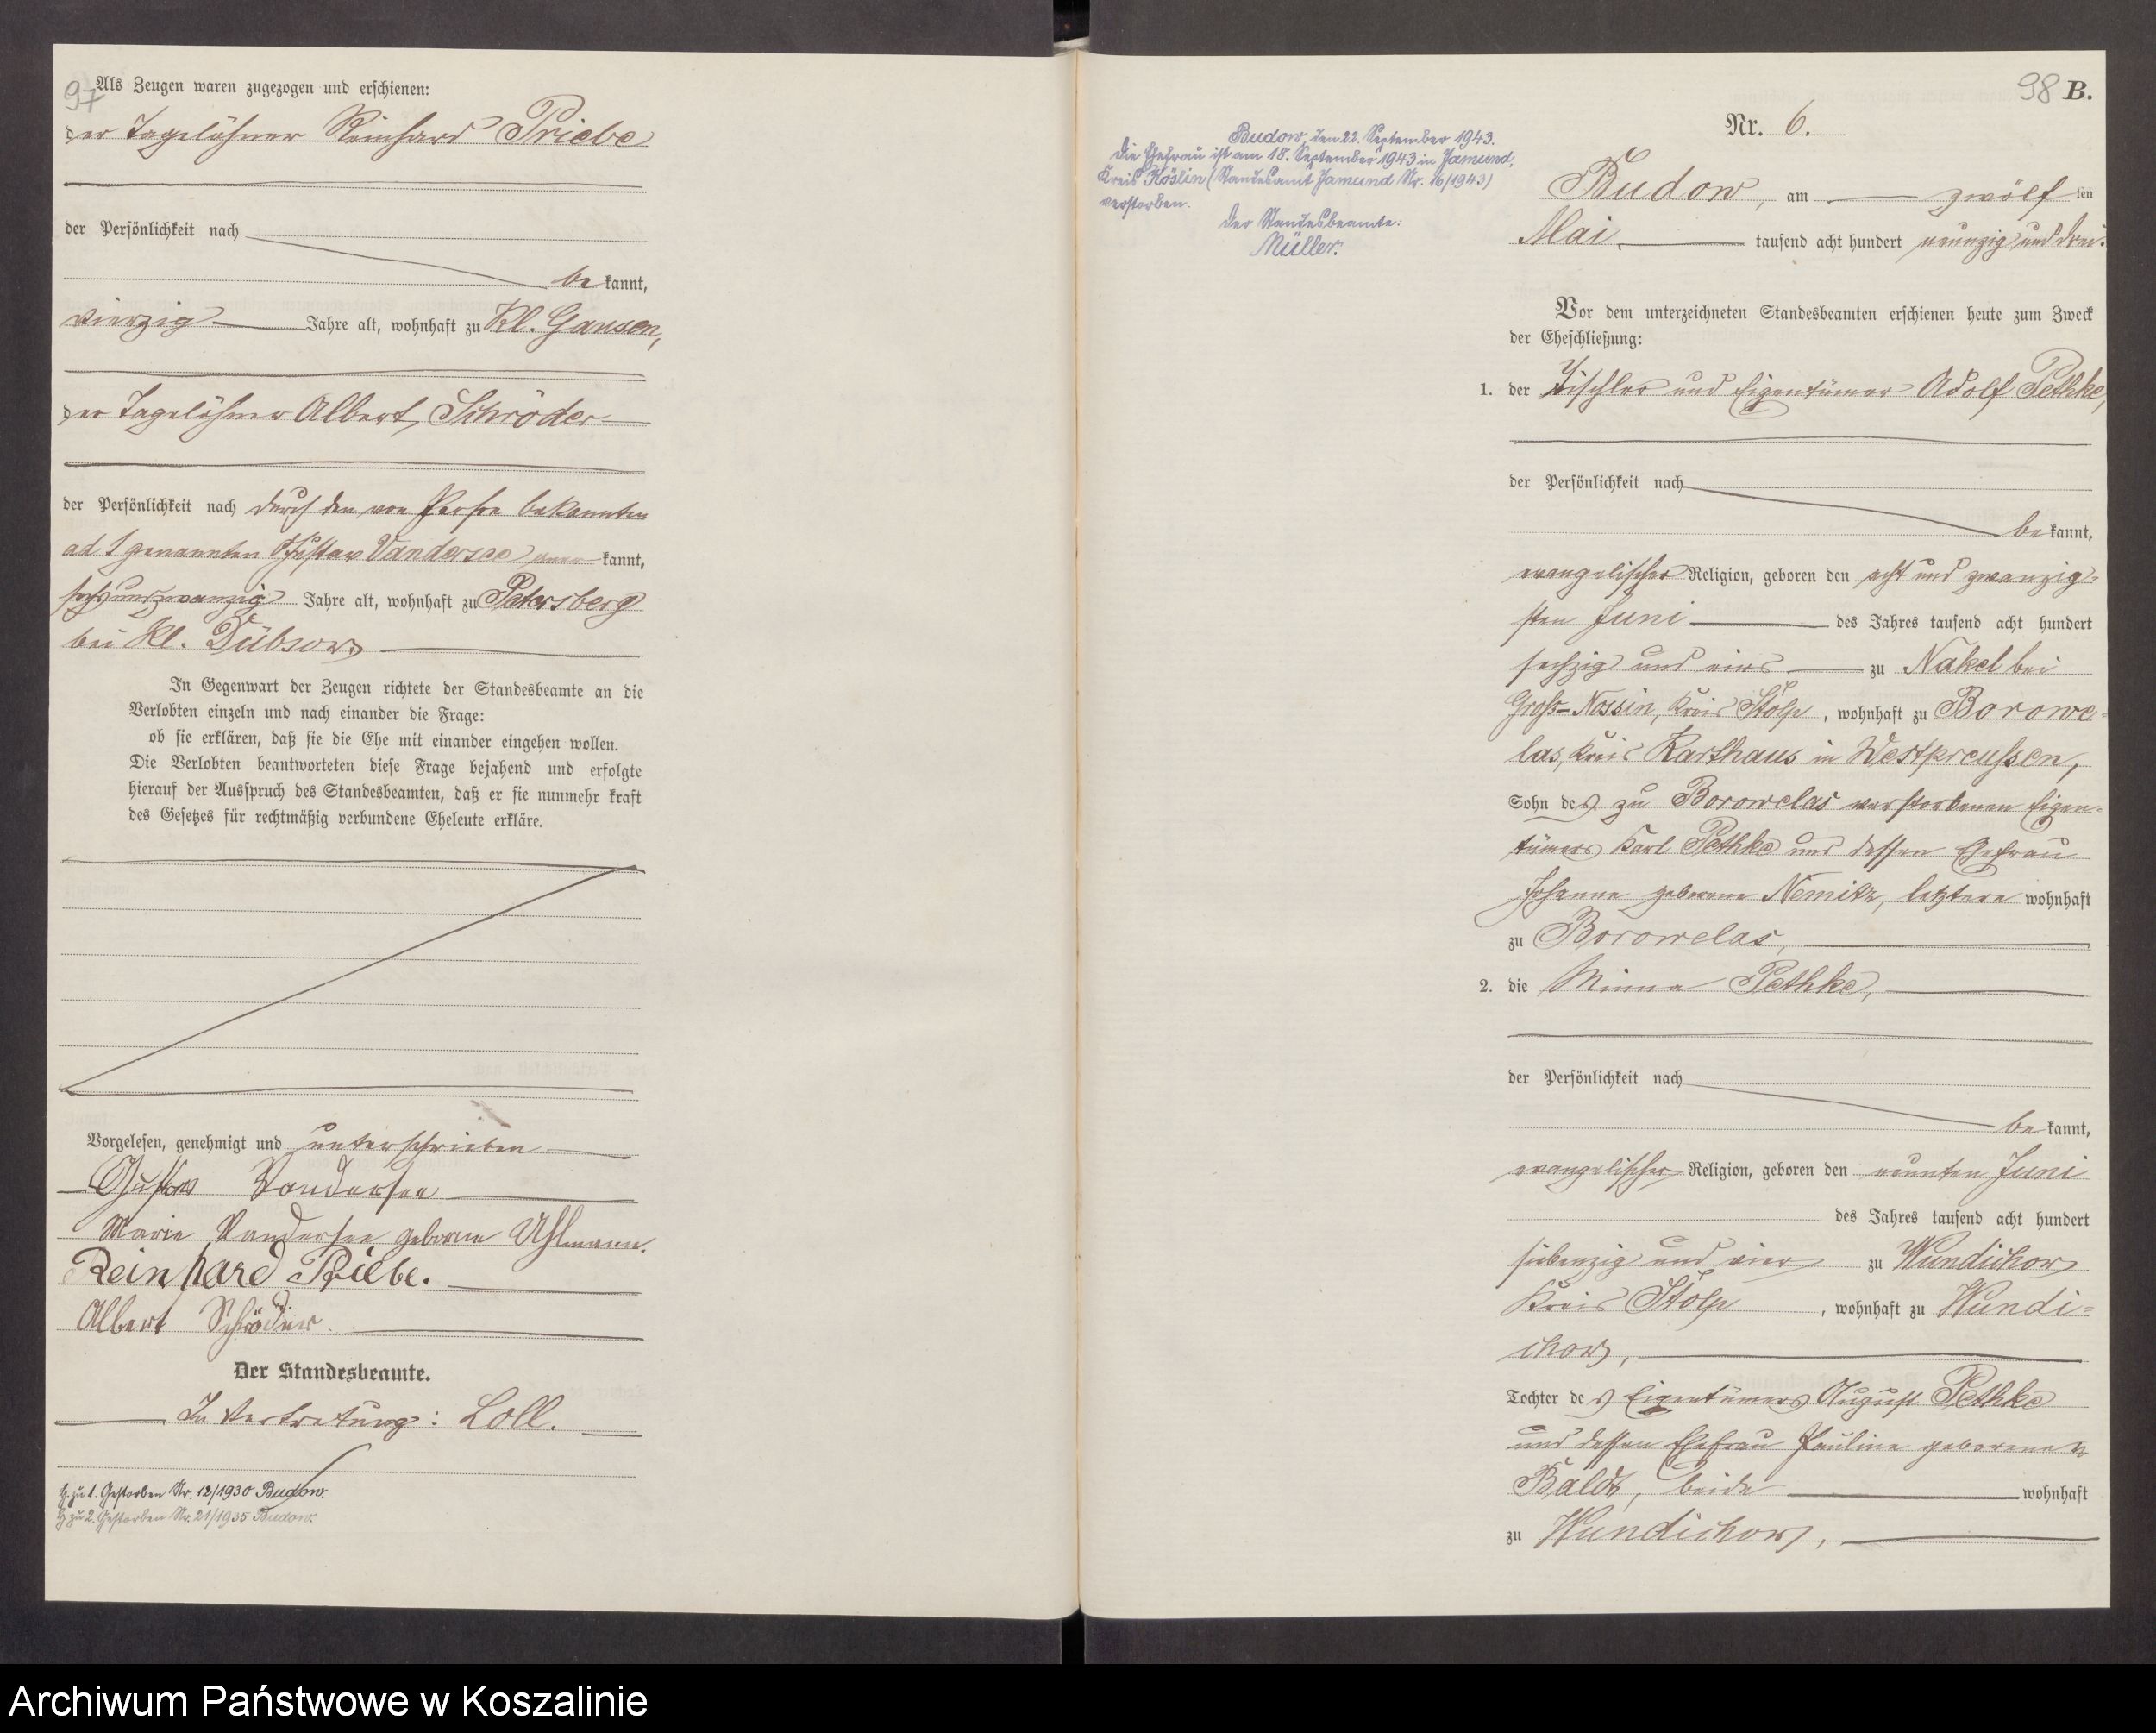 97
Als Zeugen waren zugezogen und erschienen:
der Tagelöhner Reinhard Priebe
der Persönlichkeit nach
be kannt,
vierzig Jahre alt, wohnhaft zu Kl. Gansen,
der Tagelöhner Albert Schröder
der Persönlichkeit nach durch den von Person bekannten
ad 1 genannten Gustav Vandersee aner kannt,
sechsundzwanzig Jahre alt, wohnhaft zu Petersberg
bei Kl. Dübsow
In Gegenwart der Zeugen richtete der Standesbeamte an die
Verlobten einzeln und nach einander die Frage:
ob sie erklären, daß sie die Ehe mit einander eingehen wollen.
Die Verlobten beantworteten diese Frage bejahend und erfolgte
hierauf der Ausspruch des Standesbeamten, daß er sie nunmehr kraft
des Gesetzes für rechtmäßig verbundene Eheleute erkläre.
Vorgelesen, genehmigt und unterschrieben
Gustav Vandersee
Marie Vandersee geborne Uhlmann.
Reinhard Priebe.
Albert Schröder.
Der Standesbeamte.
In Vertretung: Loll.
zu 1. Gestorben Nr. 12/1930 Budow.
zu 2. Gestorben Nr. 21/1935 Budow.
98 B.
Nr. 6.
Budow, den 22. September 1943.
Die Ehefrau ist am 18. September 1943 in Jamund,
Kreis Köslin (Standesamt Jamund Nr. 16/1943)
verstorben.
Der Standesbeamte:
Müller.
Budow, am zwölf ten
Mai tausend acht hundert neunzig und drei.
Vor dem unterzeichneten Standesbeamten erschienen heute zum Zweck
der Eheschließung:
1. der Tischler und Eigentümer Adolf Pethke,
der Persönlichkeit nach
be kannt,
evangelischer Religion, geboren den acht und zwanzig-
sten Juni des Jahres tausend acht hundert
sechzig und eins zu Nakel bei
Gross-Nossin, Kreis Stolp, wohnhaft zu Borowe-
las, Kreis Karthaus in Westpreussen,
Sohn des zu Borowelas verstorbenen Eigen-
tümers Karl Pethke und dessen Ehefrau
Johanne geborene Nemitz, letztere wohnhaft
zu Borowelas,
2. die Minna Pethke,
der Persönlichkeit nach
be kannt,
evangelischer Religion, geboren den neunten Juni
des Jahres tausend acht hundert
siebenzig und vier zu Wundichow
Kreis Stolp, wohnhaft zu Wundi-
chow,
Tochter des Eigentümers August Pethke
und dessen Ehefrau Pauline geborenen
Baldt, beide wohnhaft
zu Wundichow,
Archiwum Państwowe w Koszalinie